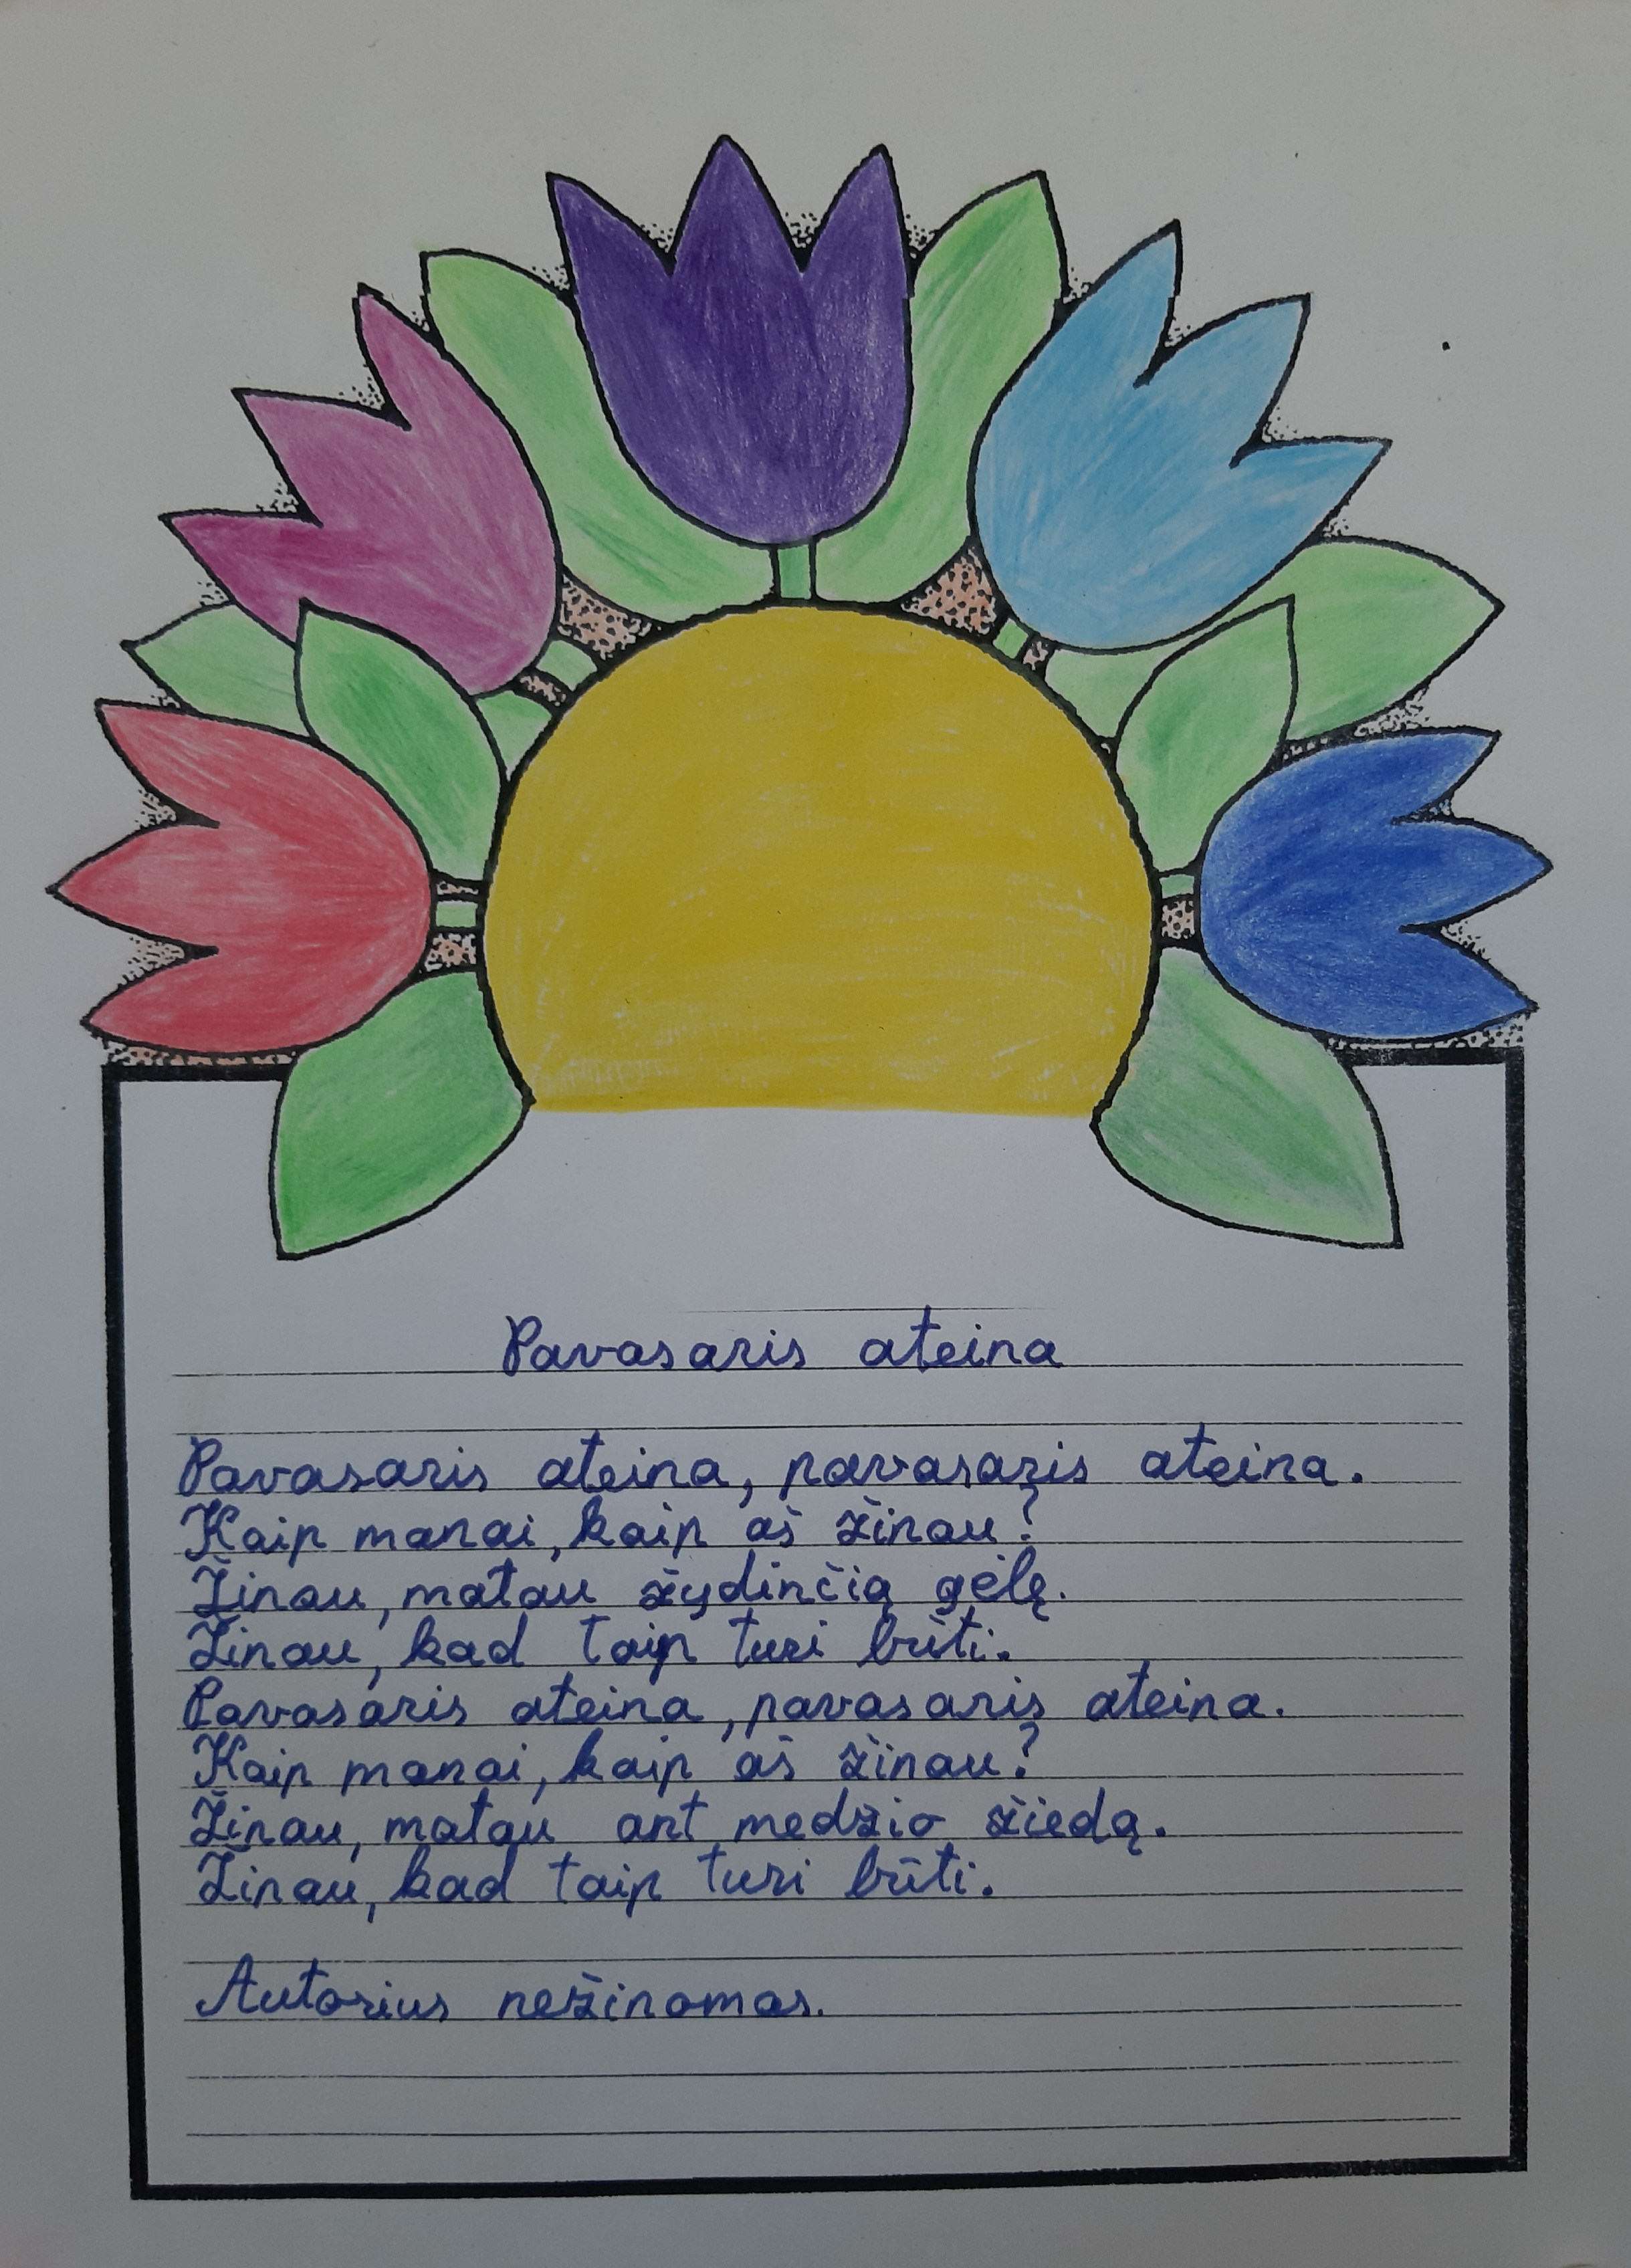 Pavasaris ateina
Pavasaris ateina, pavasaris ateina.
Kaip manai, kaip aš žinau?
Žinau, matau žydinčią gėlę.
Žinau, kad taip turi būti.
Pavasaris ateina, pavasaris ateina.
Kaip manai, kaip aš žinau?
Žinau, matau ant medžio žiedą.
Žinau, kad taip turi būti.
Autorius nežinomas.